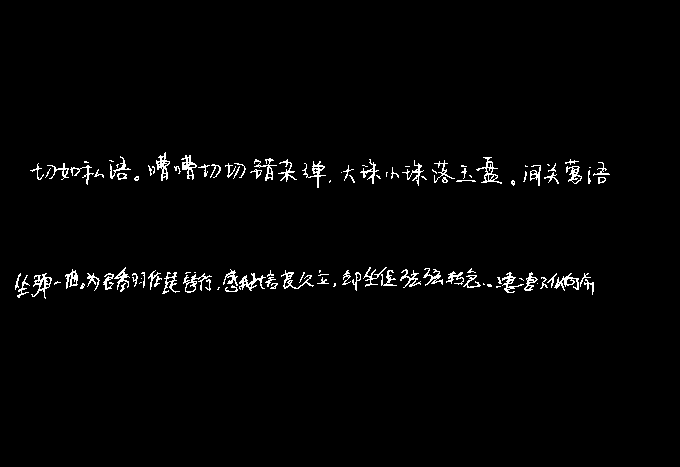 切如私语。嘈嘈切切错杂弹，大珠小珠落玉盘。间关莺语
坐弹一曲。为君翻作琵琶行，感我此言良久立，却坐促弦弦转急。凄凄不似向前